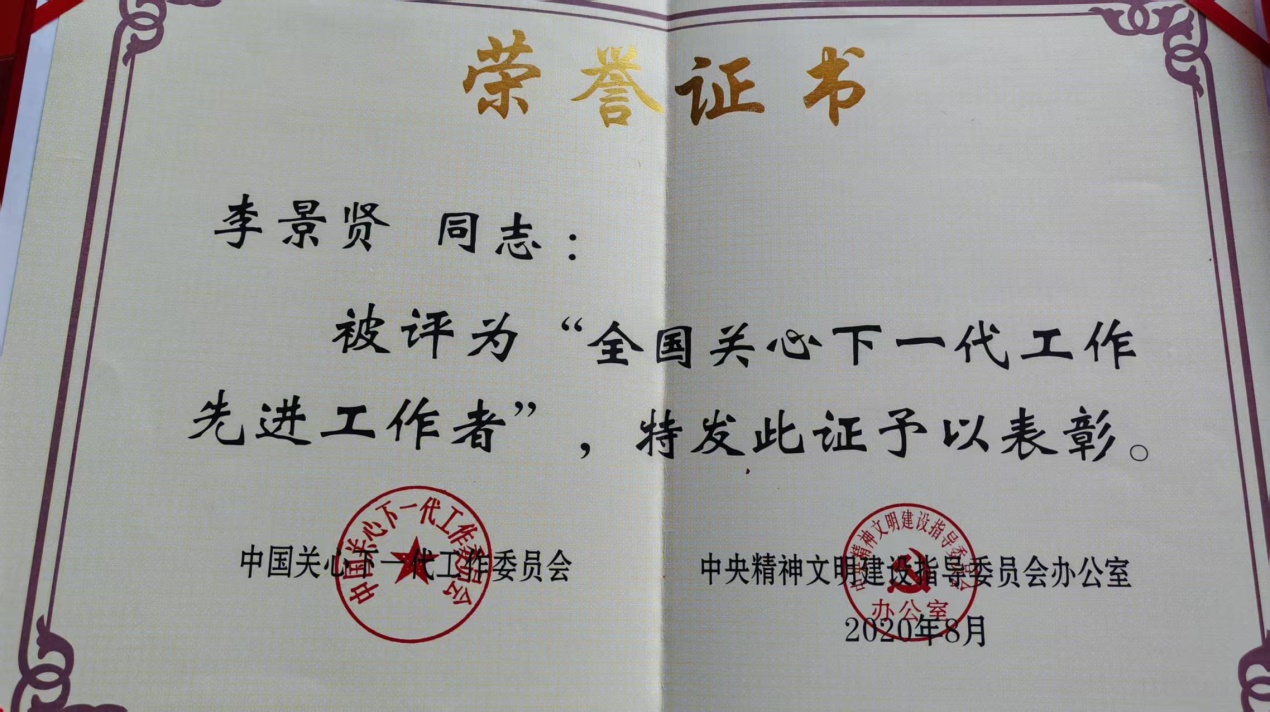 荣誉证书
李景贤 同志：
被评为“全国关心下一代工作
先进工作者”，特发此证予以表彰。
中国关心下一代工作委员会
中国关心下一代工作委员会
中央精神文明建设指导委员会办公室
中央精神文明建设指导委员会
办公室
2020年8月